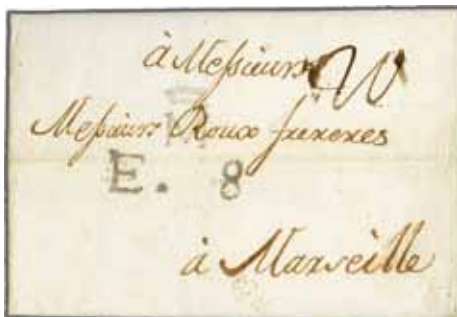 à Messieurs
Messieurs Roux frereres
E. 8
à Marseille